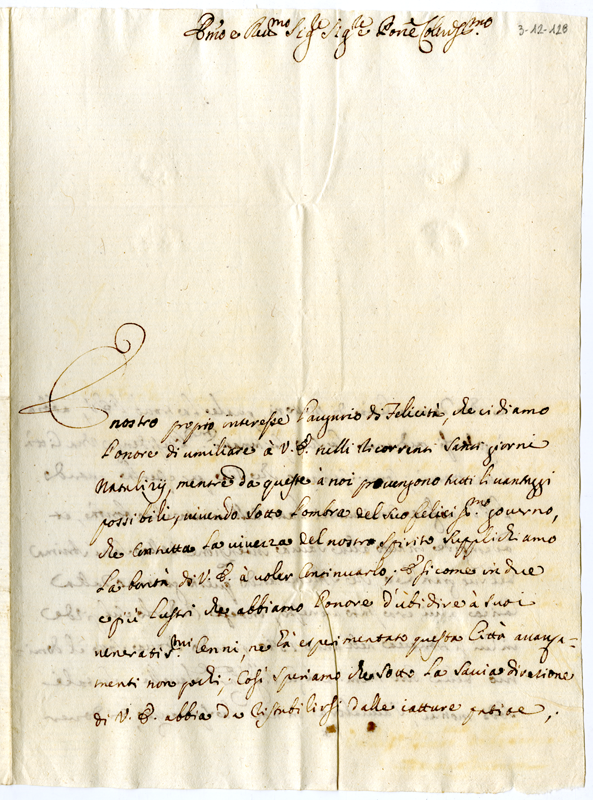 e Sig.re Sig.re e
3-12-128
È nostro proprio interesse l'augurio di Felicità, che ci diamo
l'onore di umiliare à V. E. nelli ricorrenti Santi giorni
Natalizij, mentre da queste à noi provengono tutti li vantaggi
possibili, vivendo sotto l'ombra del suo felicis.mo governo,
che con tutta la vivezza del nostro spirito supplichiamo
la bontà di V. E. à voler continuarlo, siccome in due
e più lustri che abbiamo l'onore d'ubidire à suoi
veneratis.mi Cenni, ne hà esperimentato questa Città avanza-
menti non pochi; Così speriamo che sotto la savia direzione
di V. E. abbia da ristabilirsi dalle iatture patite,;